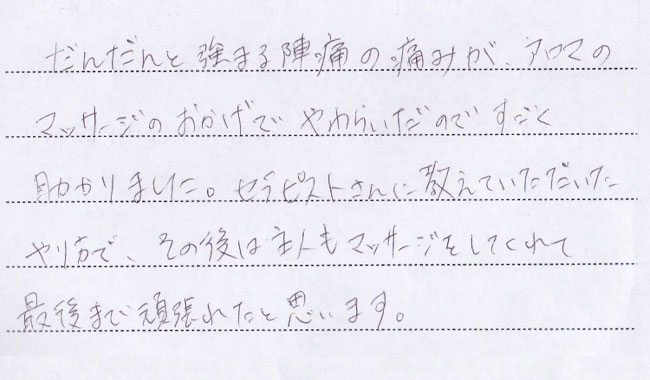 だんだんと強まる陣痛の痛みが、アロマの
マッサージのおかげでやわらいだのですごく
助かりました。セラピストさんに教えていただいた
やり方で、その後は主人もマッサージをしてくれて
最後まで頑張れたと思います。